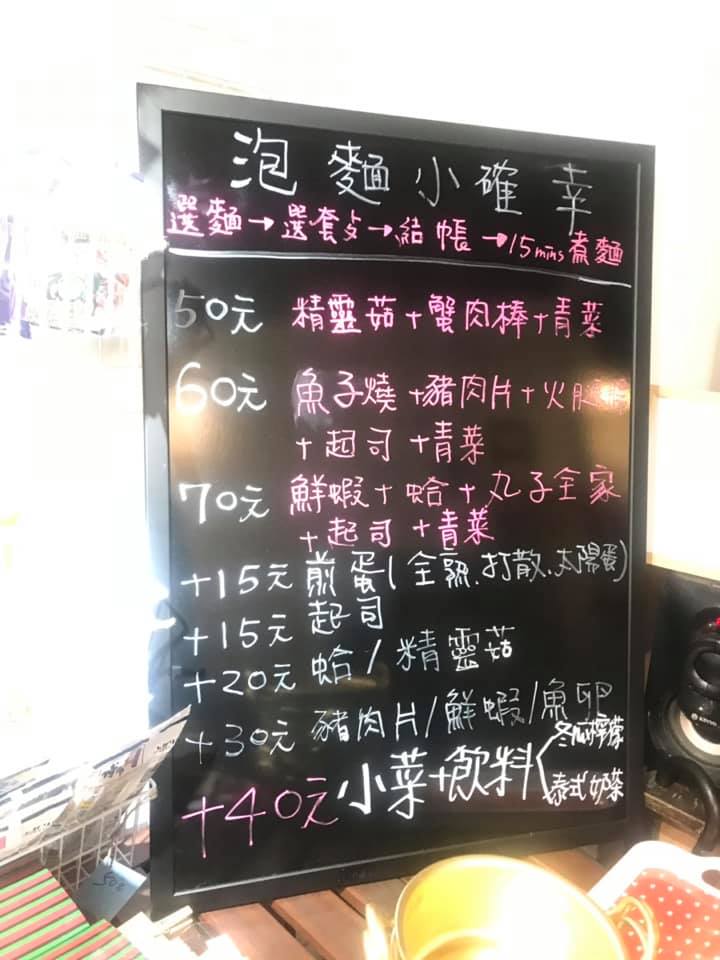 泡麵小確幸
選麵→選套餐→結帳→15mins煮麵
50元 精靈菇+蟹肉棒+青菜
60元 魚子燒+豬肉片+火腿
+起司+青菜
70元 鮮蝦+蛤+丸子全家
+起司+青菜
+15元 煎蛋(全熟.打散.太陽蛋)
+15元 起司
+20元 蛤/精靈菇
+30元 豬肉片/鮮蝦/魚卵
+40元 小菜+飲料
冬瓜檸檬
泰式奶茶